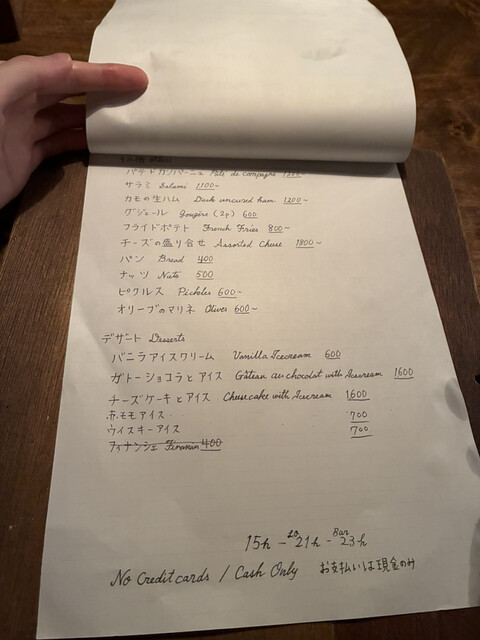 パテ ド カンパーニュ Pâté de campagne
サラミ Salami 1100~
カモの生ハム Duck uncured ham 1200~
グジェール Gougère (2p) 600
フライドポテト French Fries 800~
チーズの盛り合せ Assorted Cheese 1800~
パン Bread 400
ナッツ Nuts 500
ピクルス Pickles 600~
オリーブのマリネ Olives 600~
デザート Desserts
バニラアイスクリーム Vanilla Icecream 600
ガトーショコラとアイス Gâteau au chocolat with Icecream 1600
チーズケーキとアイス Cheesecake with Icecream 1600
赤モモアイス 700
ウイスキーアイス 700
フィナンシェ 400
15h - LO 21h - Bar 23h
No Credit cards / Cash Only お支払いは現金のみ